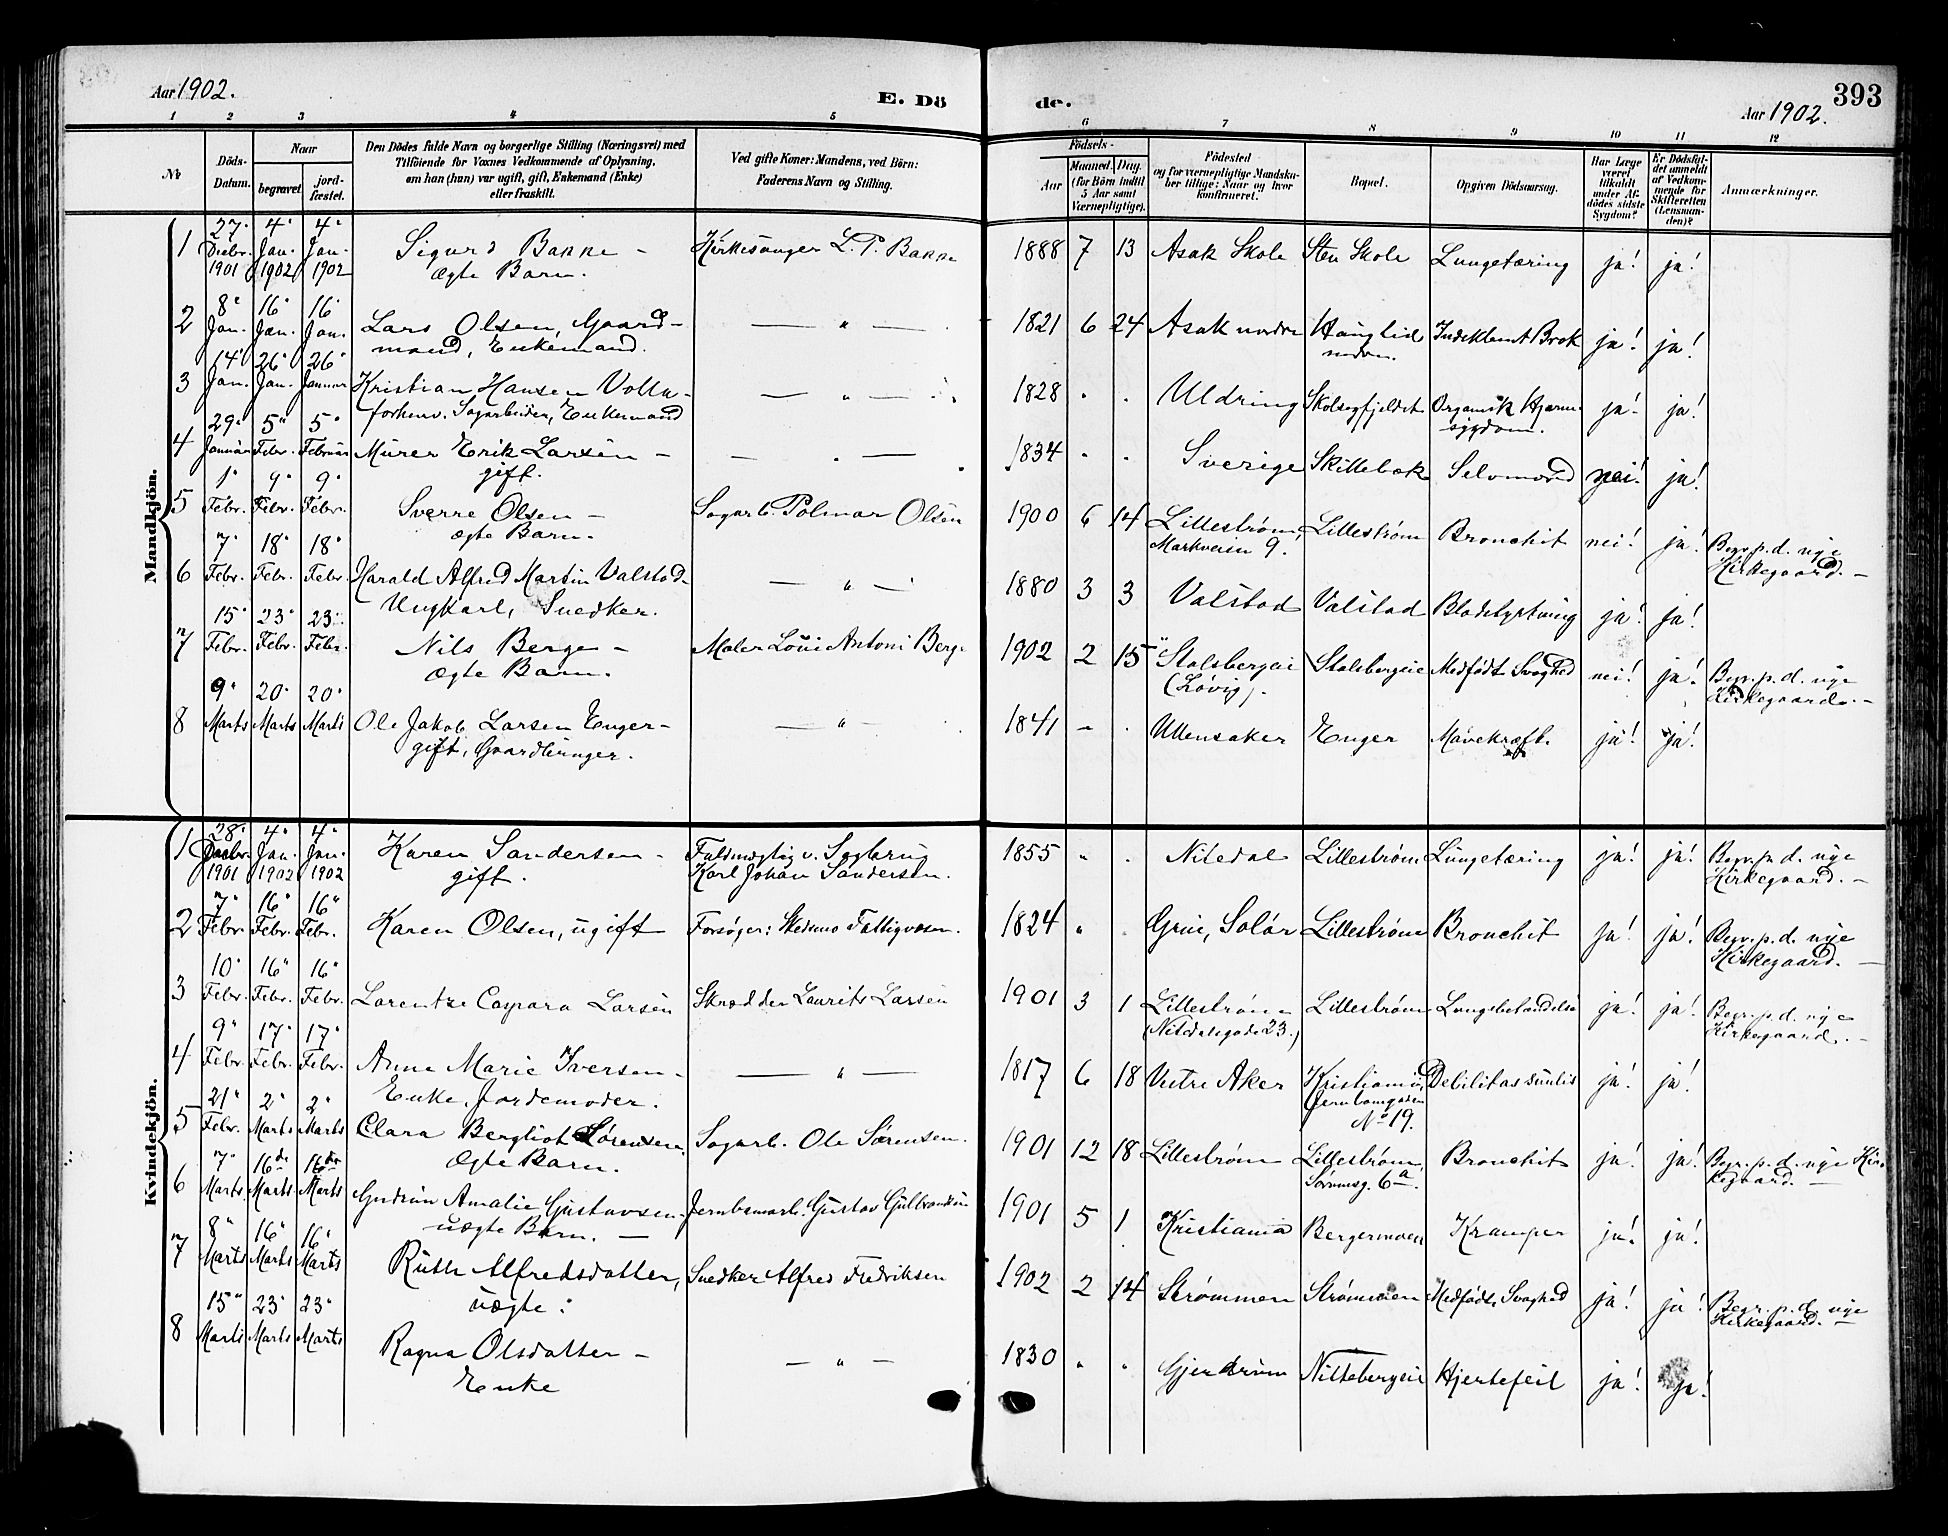 Aar 1902.
E. Dö
de.
393
Aar 1902.
1 2 3 4 5 6 7 8 9 10 11 12
No
Döds-Datum.
Naar
begravet
jord-fæstet.
Den Dödes fulde Navn og borgerlige Stilling (Næringsvei) med
Tilföiende for Voxnes Vedkommende af Oplysning,
om han (hun) var ugift, gift, Enkemand (Enke)
eller fraskilt.
Ved gifte Koner: Mandens, ved Börn:
Faderens Navn og Stilling.
Födsels-
Aar
Maaned. Dag.
(for Börn indtil
5 Aar samt
Værnepligtige).
Födested
og for værnepligtige Mandsku-
ber tillige: Naar og hvor
konfirmeret.
Bopæl.
Opgiven Dödsaarsag.
Har Læge
været
tilkaldt
under Af-
dödes sidste
Sygdom?
Er Dödsfal-
det anmeldt
af Vedkom-
mende for
Skifteretten
(Lensman-
den)?
Anmærkninger.
Mandkjön.
1 27. Decbr. 1901 4. Jan. 1902 4. Jan. 1902 Sigurd Bakke – ægte Barn. Kirkesanger L. P. Bakke 1888 7 13 Asak Skole Sten Skole Lungetæring ja! ja!
2 8. Jan. 16. Jan. 16. Jan. Lars Olsen, Gaard-
mand, Enkemand. — " — 1821 6 24 Asak nordre Hauglid nedre. Indeklemt Brok ja! ja!
3 14. Jan. 26. Jan. 26. Januar Kristian Hansen Volla –
forhenv. Sagarbeider, Enkemand — " — 1828 " " Uldring Skolsegfjeldet Organisk Hjerne-
sygdom. ja! ja!
4 29. Januar 5. Febr. 5. Februar Murer Erik Larsen –
gift. — " — 1834 " " Sverige Skillebæk Selvmord nei! ja!
5 1. Febr. 9. Febr. 9. Febr. Sverre Olsen –
ægte Barn. Sagarb. Polmar Olsen 1900 6 14 Lillestrøm,
Markveien 9. Lillestrøm Bronchit nei! ja! Begr. p. d. nye
Kirkegaard. –
6 7. Febr. 18. Febr. 18. Febr. Harald Alfred Martin Valstad –
Ungkarl, Snedker. — " — 1880 3 3 Valstad Valstad Blodstyrtning ja! ja!
7 15. Febr. 23. Febr. 23. Febr. Nils Berge –
ægte Barn. Maler Louis Antoni Berge 1902 2 15 Stalsbergeie
(Løvig). Stalsbergeie Medfødt Svaghed nei! ja! Begr. p. d. nye
Kirkegaard. –
8 9. Marts 20. Marts 20. Marts Ole Jakob Larsen Enger –
gift, Gaardbruger. — " — 1841 – . Ullensaker Enger Mavekræft. ja! ja!
Kvindekjön.
1 28. Decbr. 1901 4. Jan. 1902 4. Jan. 1902 Karen Sandersen –
gift. Fuldmægtig v. Sagbrug
Karl Johan Sandersen. 1855 " . Nitedal Lillestrøm Lungetæring ja! ja! Begr. p. d. nye
Kirkegaard. –
2 7. Febr. 16. Febr. 16. Febr. Karen Olsen, ugift Forsørger: Skedsmo Fattigvæsen. 1824 " . Grue, Solør Lillestrøm Bronchit ja! ja! Begr. p. d. nye
Kirkegaard. –
3 10. Febr. 16. Febr. 16. Febr. Lorentze Caspara Larsen Skrædder Laurits Larsen 1901 3 1 Lillestrøm
(Nitedalsgade 23.) Lillestrøm Lungebetændelse ja! ja! Begr. p. d. nye
Kirkegaard. –
4 9. Febr. 17. Febr. 17. Febr. Anne Marie Iversen –
Enke, Jordemoder. — " — 1817 6 18 Vestre Aker Kristiania,
Jernbanegaden
No 19. Debilitas senilis ja! ja!
5 21. Febr. 2. Marts 2. Marts Clara Bergliot Sørensen
Ægte Barn. Sagarb. Ole Sørensen. 1901 12 18 Lillestrøm Lillestrøm,
6a Bronchit ja! ja! Begr. p. d. nye Kir-
kegaard. –
6 7. Marts 16de Marts 16de Marts Gudrun Amalie Gustavsen
uægte Barn. – Jernbanearb. Gustav Gulbrandsen 1901 5 1 Kristiania Bergermoen Kramper ja! ja!
7 8. Marts 16. Marts 16. Marts Ruth Alfredsdatter,
uægte: Snedker Alfred Fredriksen 1902 2 14 Strømmen Strømmen Medfødt Svaghed ja! ja! Begr. p. d. nye
Kirkegaard. –
8 15. Marts 23. Marts 23. Marts Ragna Olsdatter –
Enke — " — 1830 " " Gjerdrum Nittebergeie Hjertefeil ja! ja!